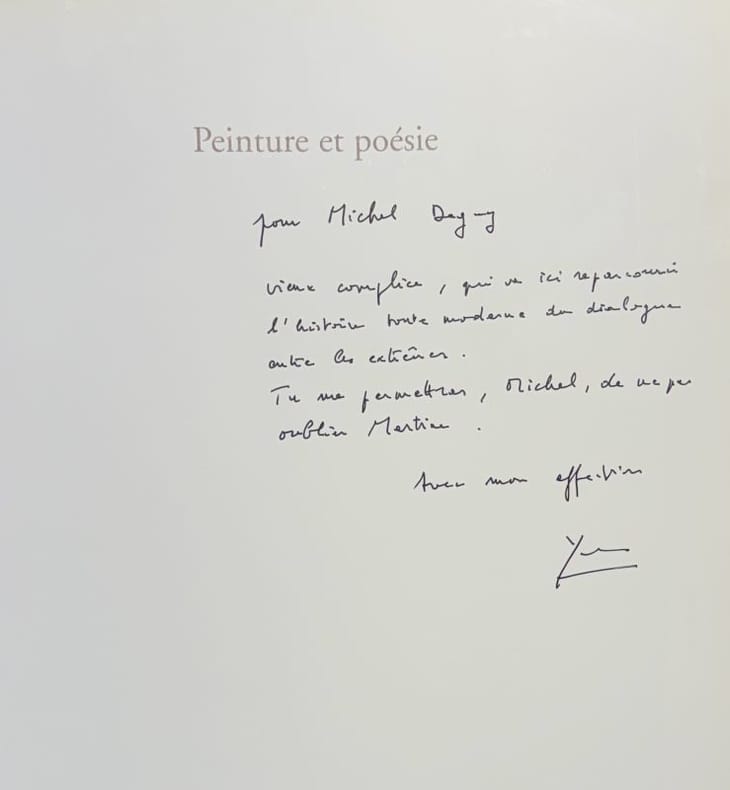 Peinture et poésie
pour Michel
vieux complice, qui va ici reparcourir
l'histoire toute moderne du dialogue
entre les extrêmes.
Tu me permettras, Michel, de ne pas
oublier Martine.
Avec mon affection